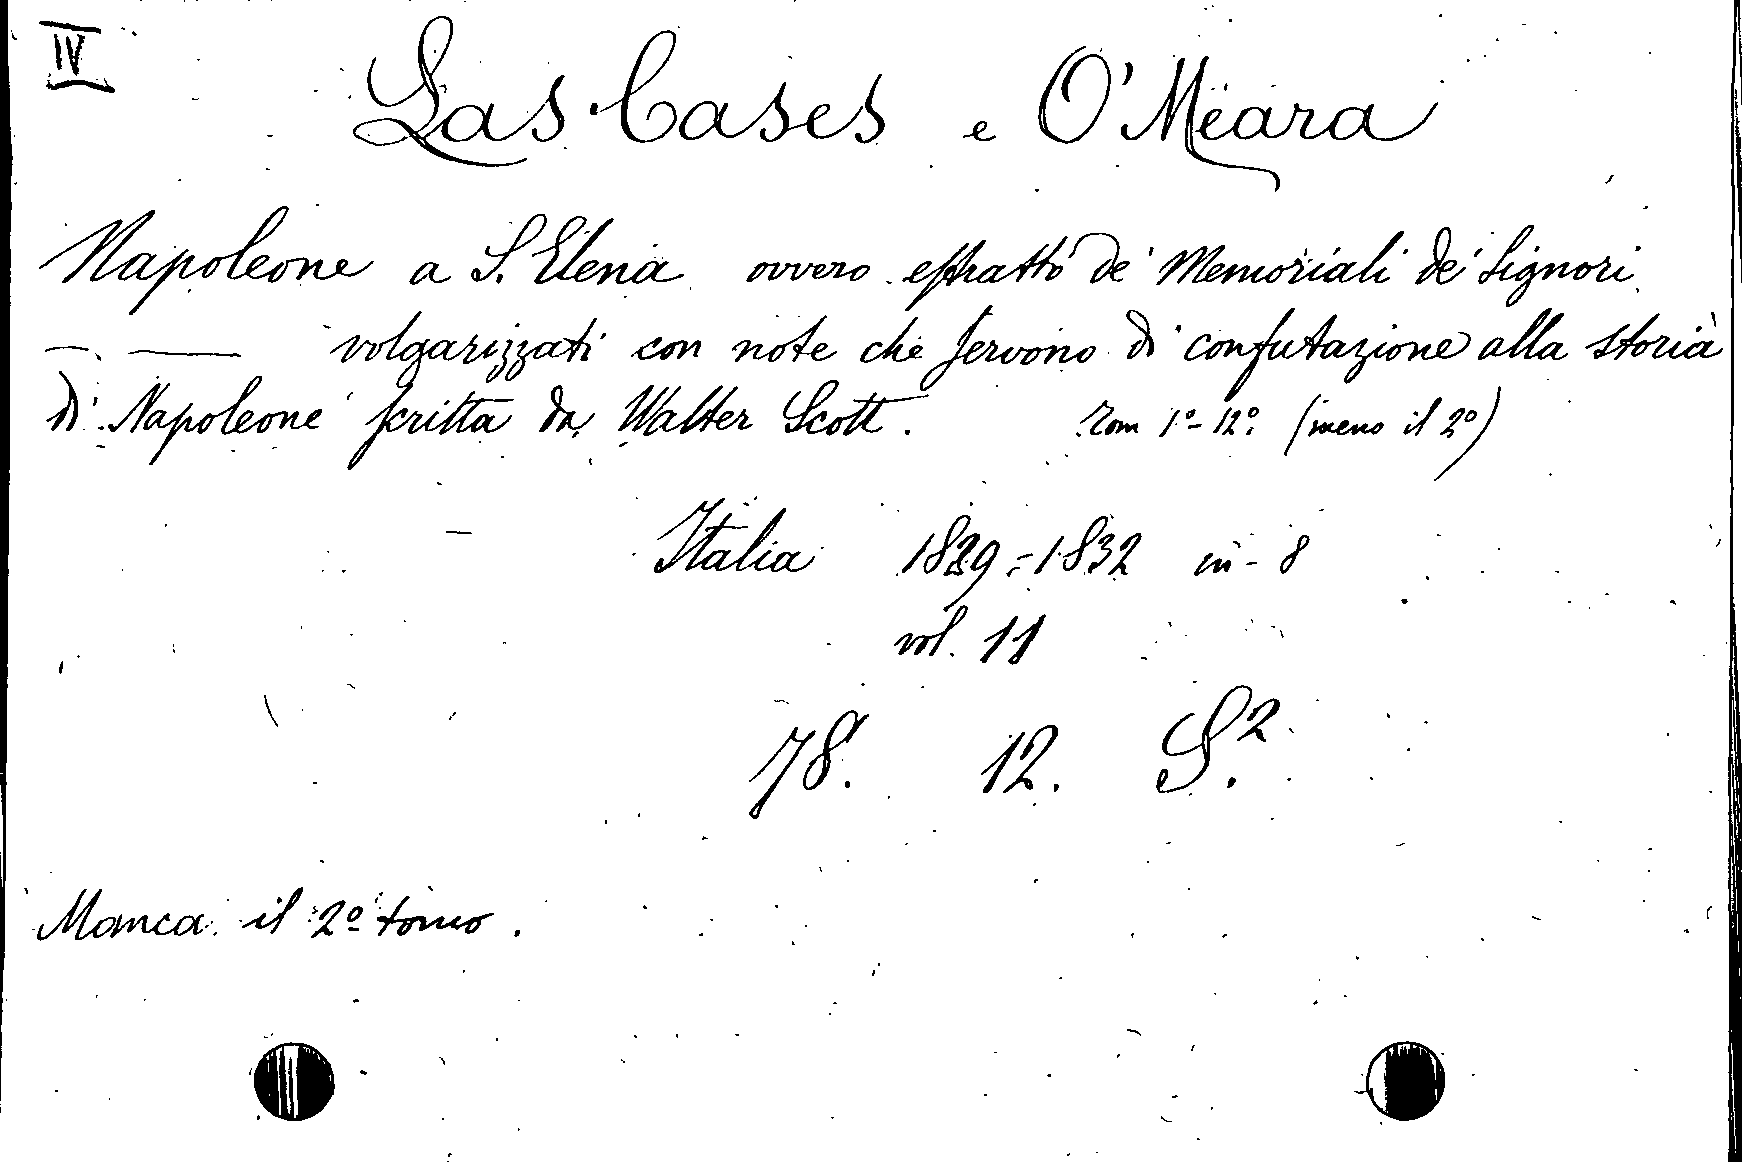 IV
Las Cases e O'Meara
Napoleone a S. Elena ovvero estratto de' Memoriali de' Signori
— — volgarizzati con note che servono di confutazione alla storia
di Napoleone scritta da Walter Scott. Tom 1º-12º (meno il 2º)
Italia 1829=1832 in-8
vol. 11
78. 12. S.²
Manca il 2º tomo.